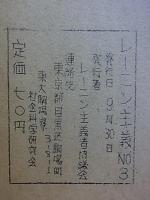 レーニン主義 NO3
発行日 9月30日
発行者
レーニン主義者協議会
連絡先
東京都目黒区駒場町
東大駒場寮 3-S-1
社会科学研究会
定価 七〇円